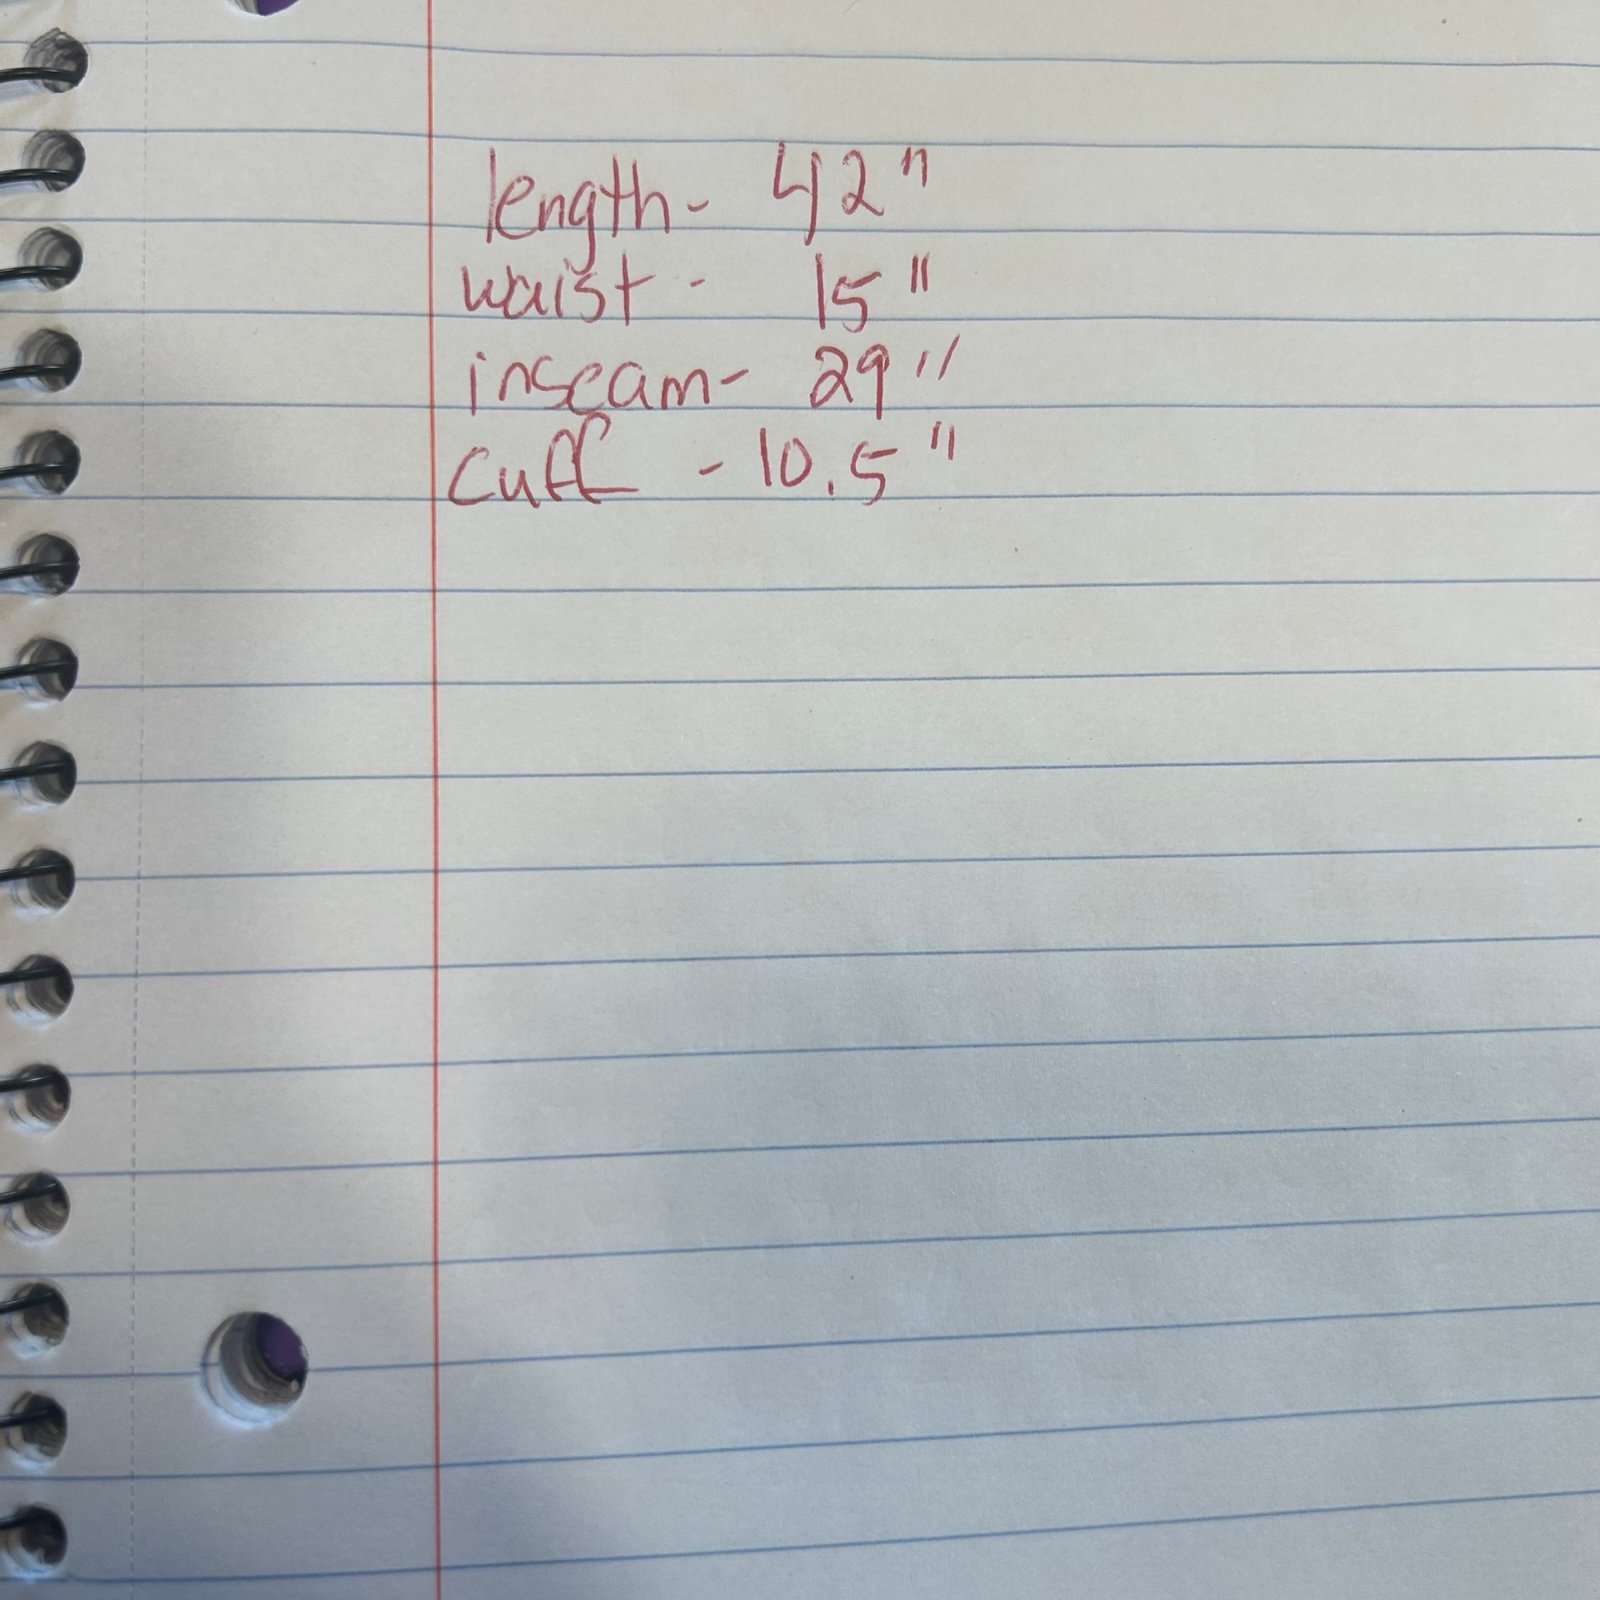 length- 42"
waist - 15"
inseam- 29"
cuff - 10.5"